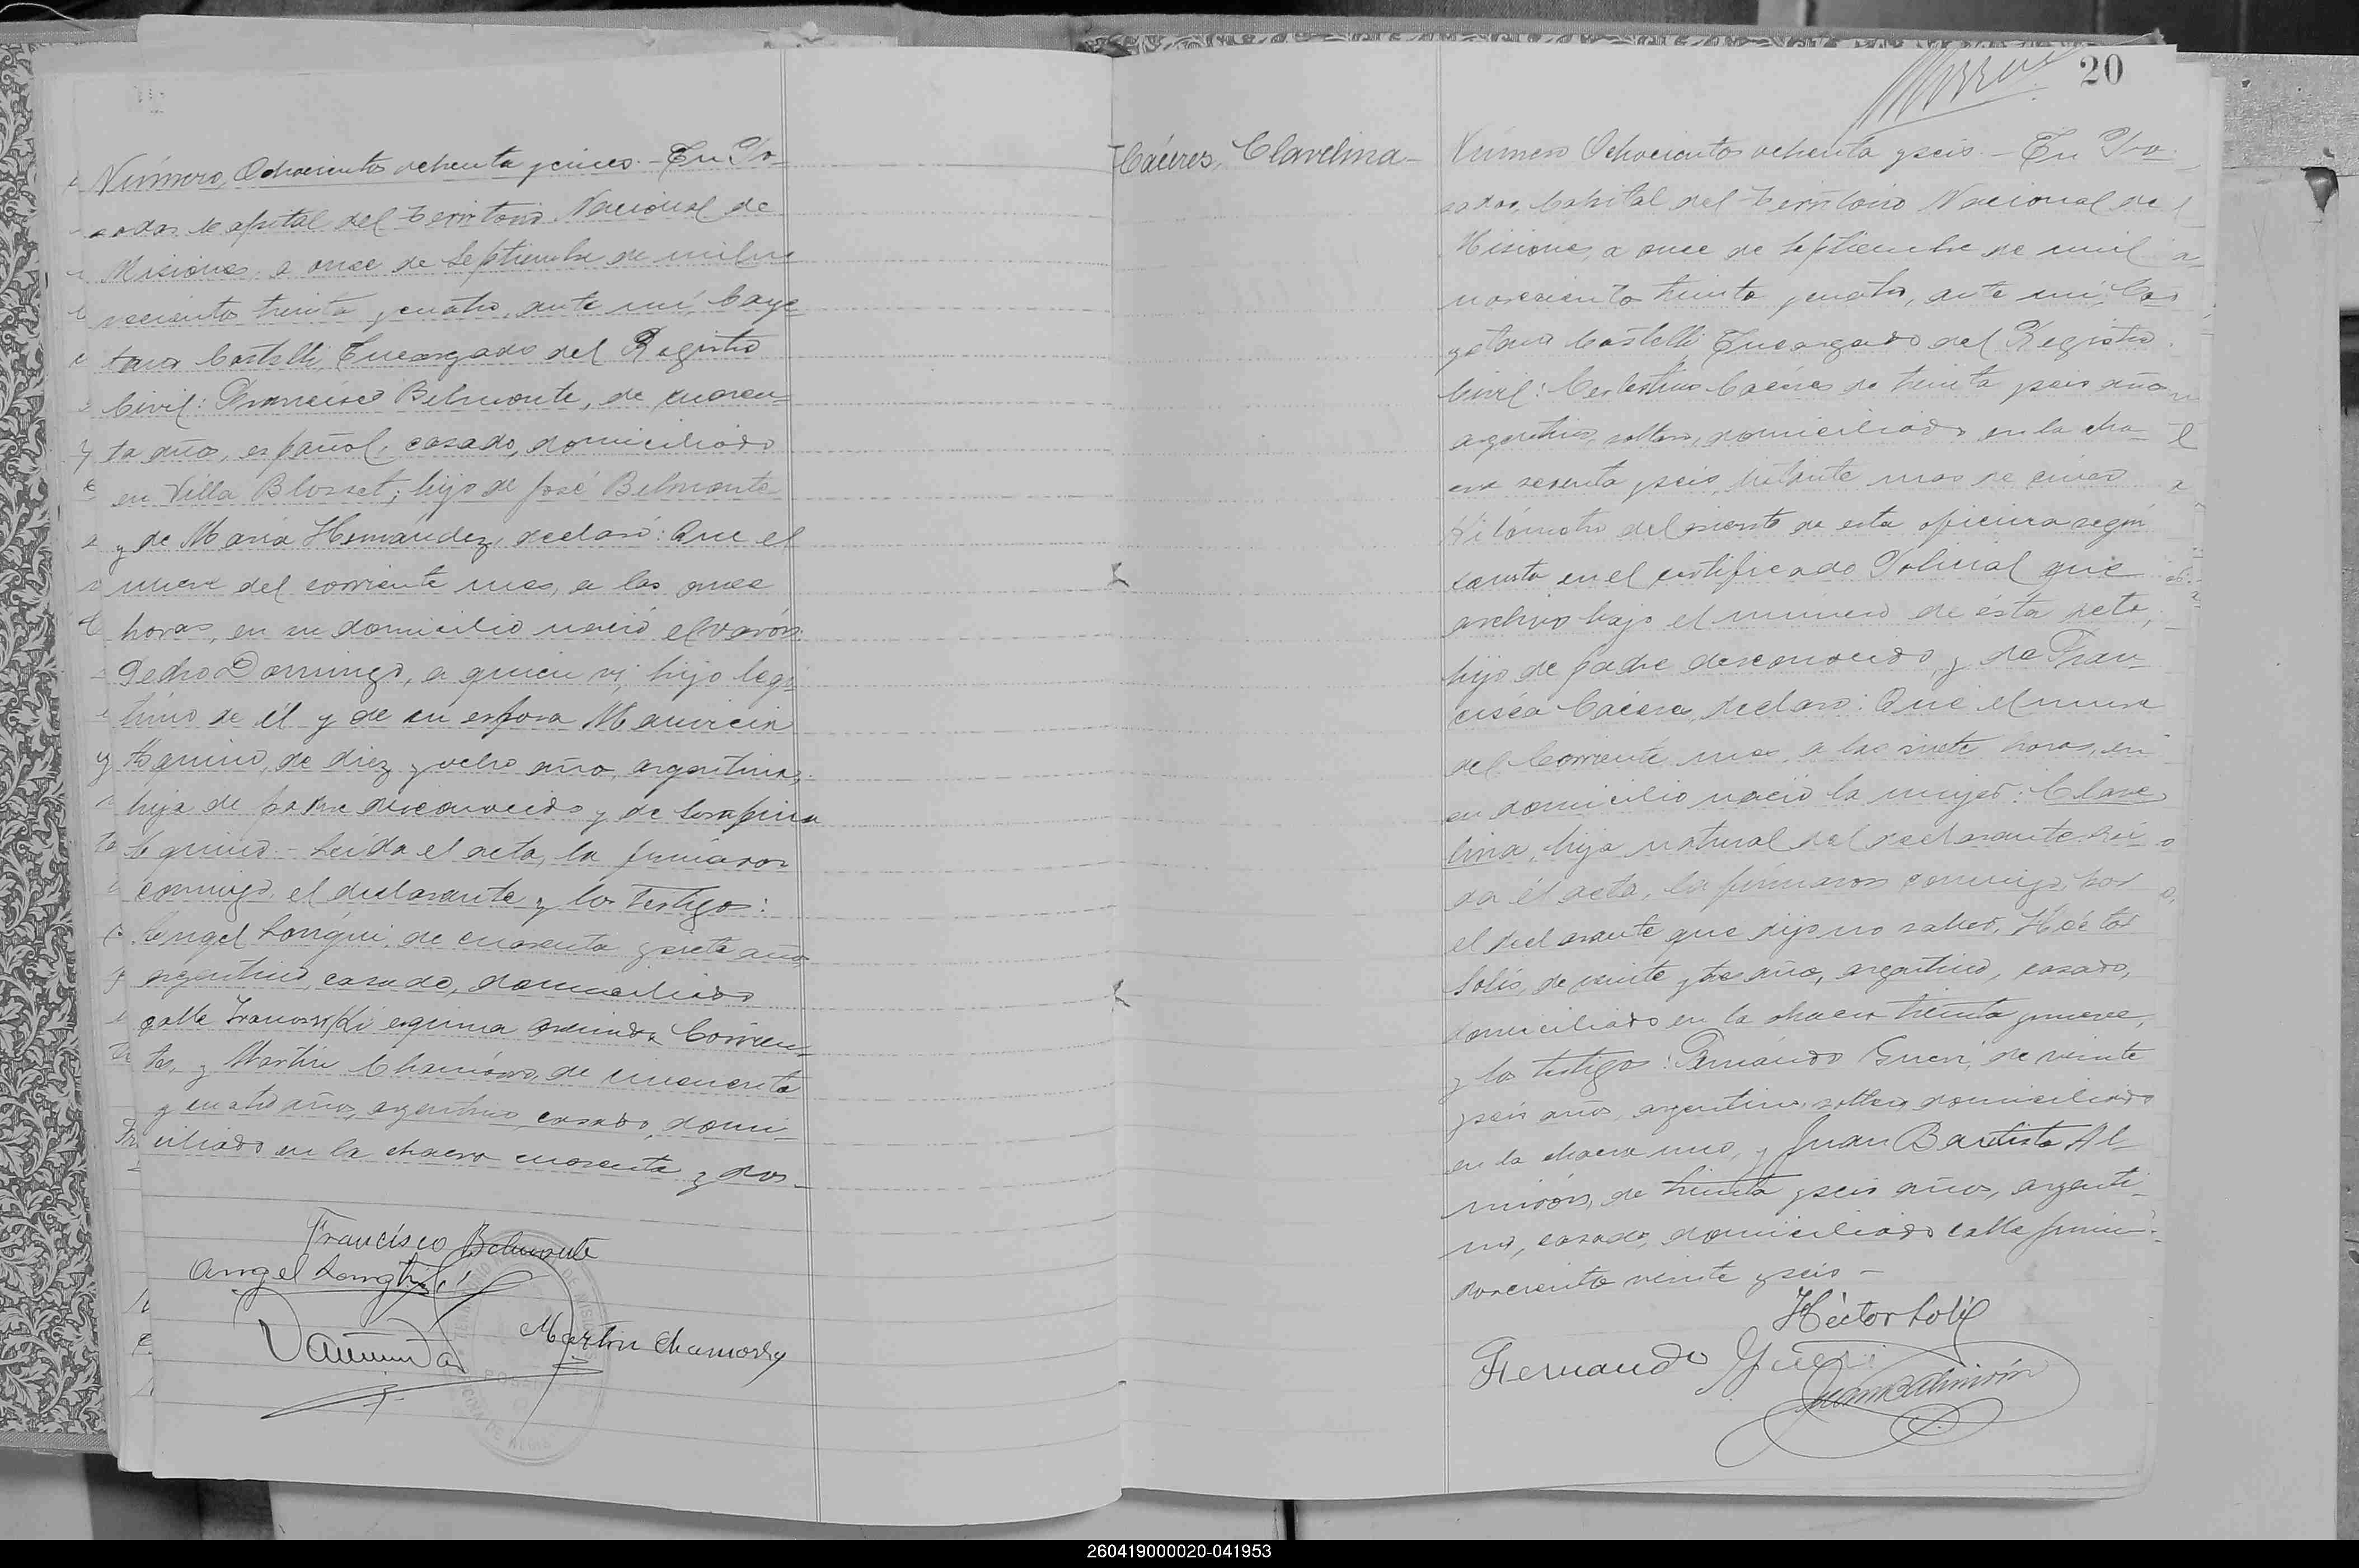 Número Ochocientos ochenta y cinco. - En Po-
sadas Capital del Territorio Nacional de
Misiones, a once de Septiembre de mil no
vecientos treinta y cuatro, ante mí, Caye
tano Castelli, Encargado del Registro
Civil: Francisco Belmonte, de cuaren-
ta años, español, casado, domiciliado
en Villa Blosset, hijo de José Belmonte
y de María Hernández, declaró: Que el
nueve del corriente mes, a las once
horas, en su domicilio nació el varón
Pedro Domingo, a quien vi, hijo legí-
timo de él y de su esposa Mauricia
Aquino, de diez y ocho años, argentina,
hija de padre desconocido y de Serapina
Aquino - Leída el acta, la firmaron
conmigo, el declarante y los testigos:
Angel Longhi, de cuarenta y siete años,
argentino, casado, domiciliado
calle esquina avenida Corrien-
tes, y Martín Chamorro, de cincuenta
y cuatro años, argentino, casado, domi-
ciliado en la chacra cuarenta y dos -
Francisco Belmonte
Angel Longhi
Martin Chamorro
20
Cáceres, Clavelina -
Número Ochocientos ochenta y seis - En Po-
sadas, Capital del Territorio Nacional de
Misiones, a once de Septiembre de mil
novecientos treinta y cuatro, ante mí, Ca-
yetano Castelli, Encargado del Registro
Civil: Celestino Cáceres de treinta y seis años
argentino, soltero, domiciliado en la cha-
cra sesenta y seis, distante mas de cinco
kilómetros del asiento de esta oficina según
consta en el certificado Policial que
archivo bajo el número de ésta acta,
hijo de padre desconocido y de Fran-
cisca Cácera, declaró: Que el nueve
del Corriente mes, a las siete horas, en
su domicilio nació la mujer: Clave-
lina, hija natural del declarante. Leí-
da el acta, la firmaron conmigo, por
el declarante que dijo no saber, Héctor
Solís, de veinte y tres años, argentino, casado,
domiciliado en la chacra treinta y nueve,
y los testigos: Fernando Gueri, de veinte
y seis años, argentino, soltero, domiciliado
en la chacra uno, y Juan Bautista Al-
mirón, de treinta y seis años, argenti-
no, casado, domiciliado calle Junín
doscientos veinte y seis -
Héctor Solís
Fernando Gueri
Juan B Almirón
260419000020-041953